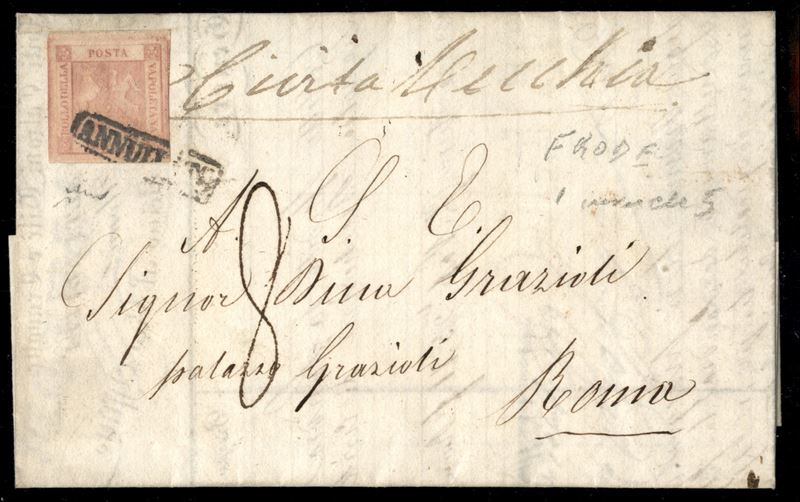 POSTA
BOLLO DELLA
NAPOLETANA
ANNULLATO
Civita Vecchia
FRODE
1 5
A. S. E.
Signor Duca Grazioli
8
palazzo Grazioli
Roma